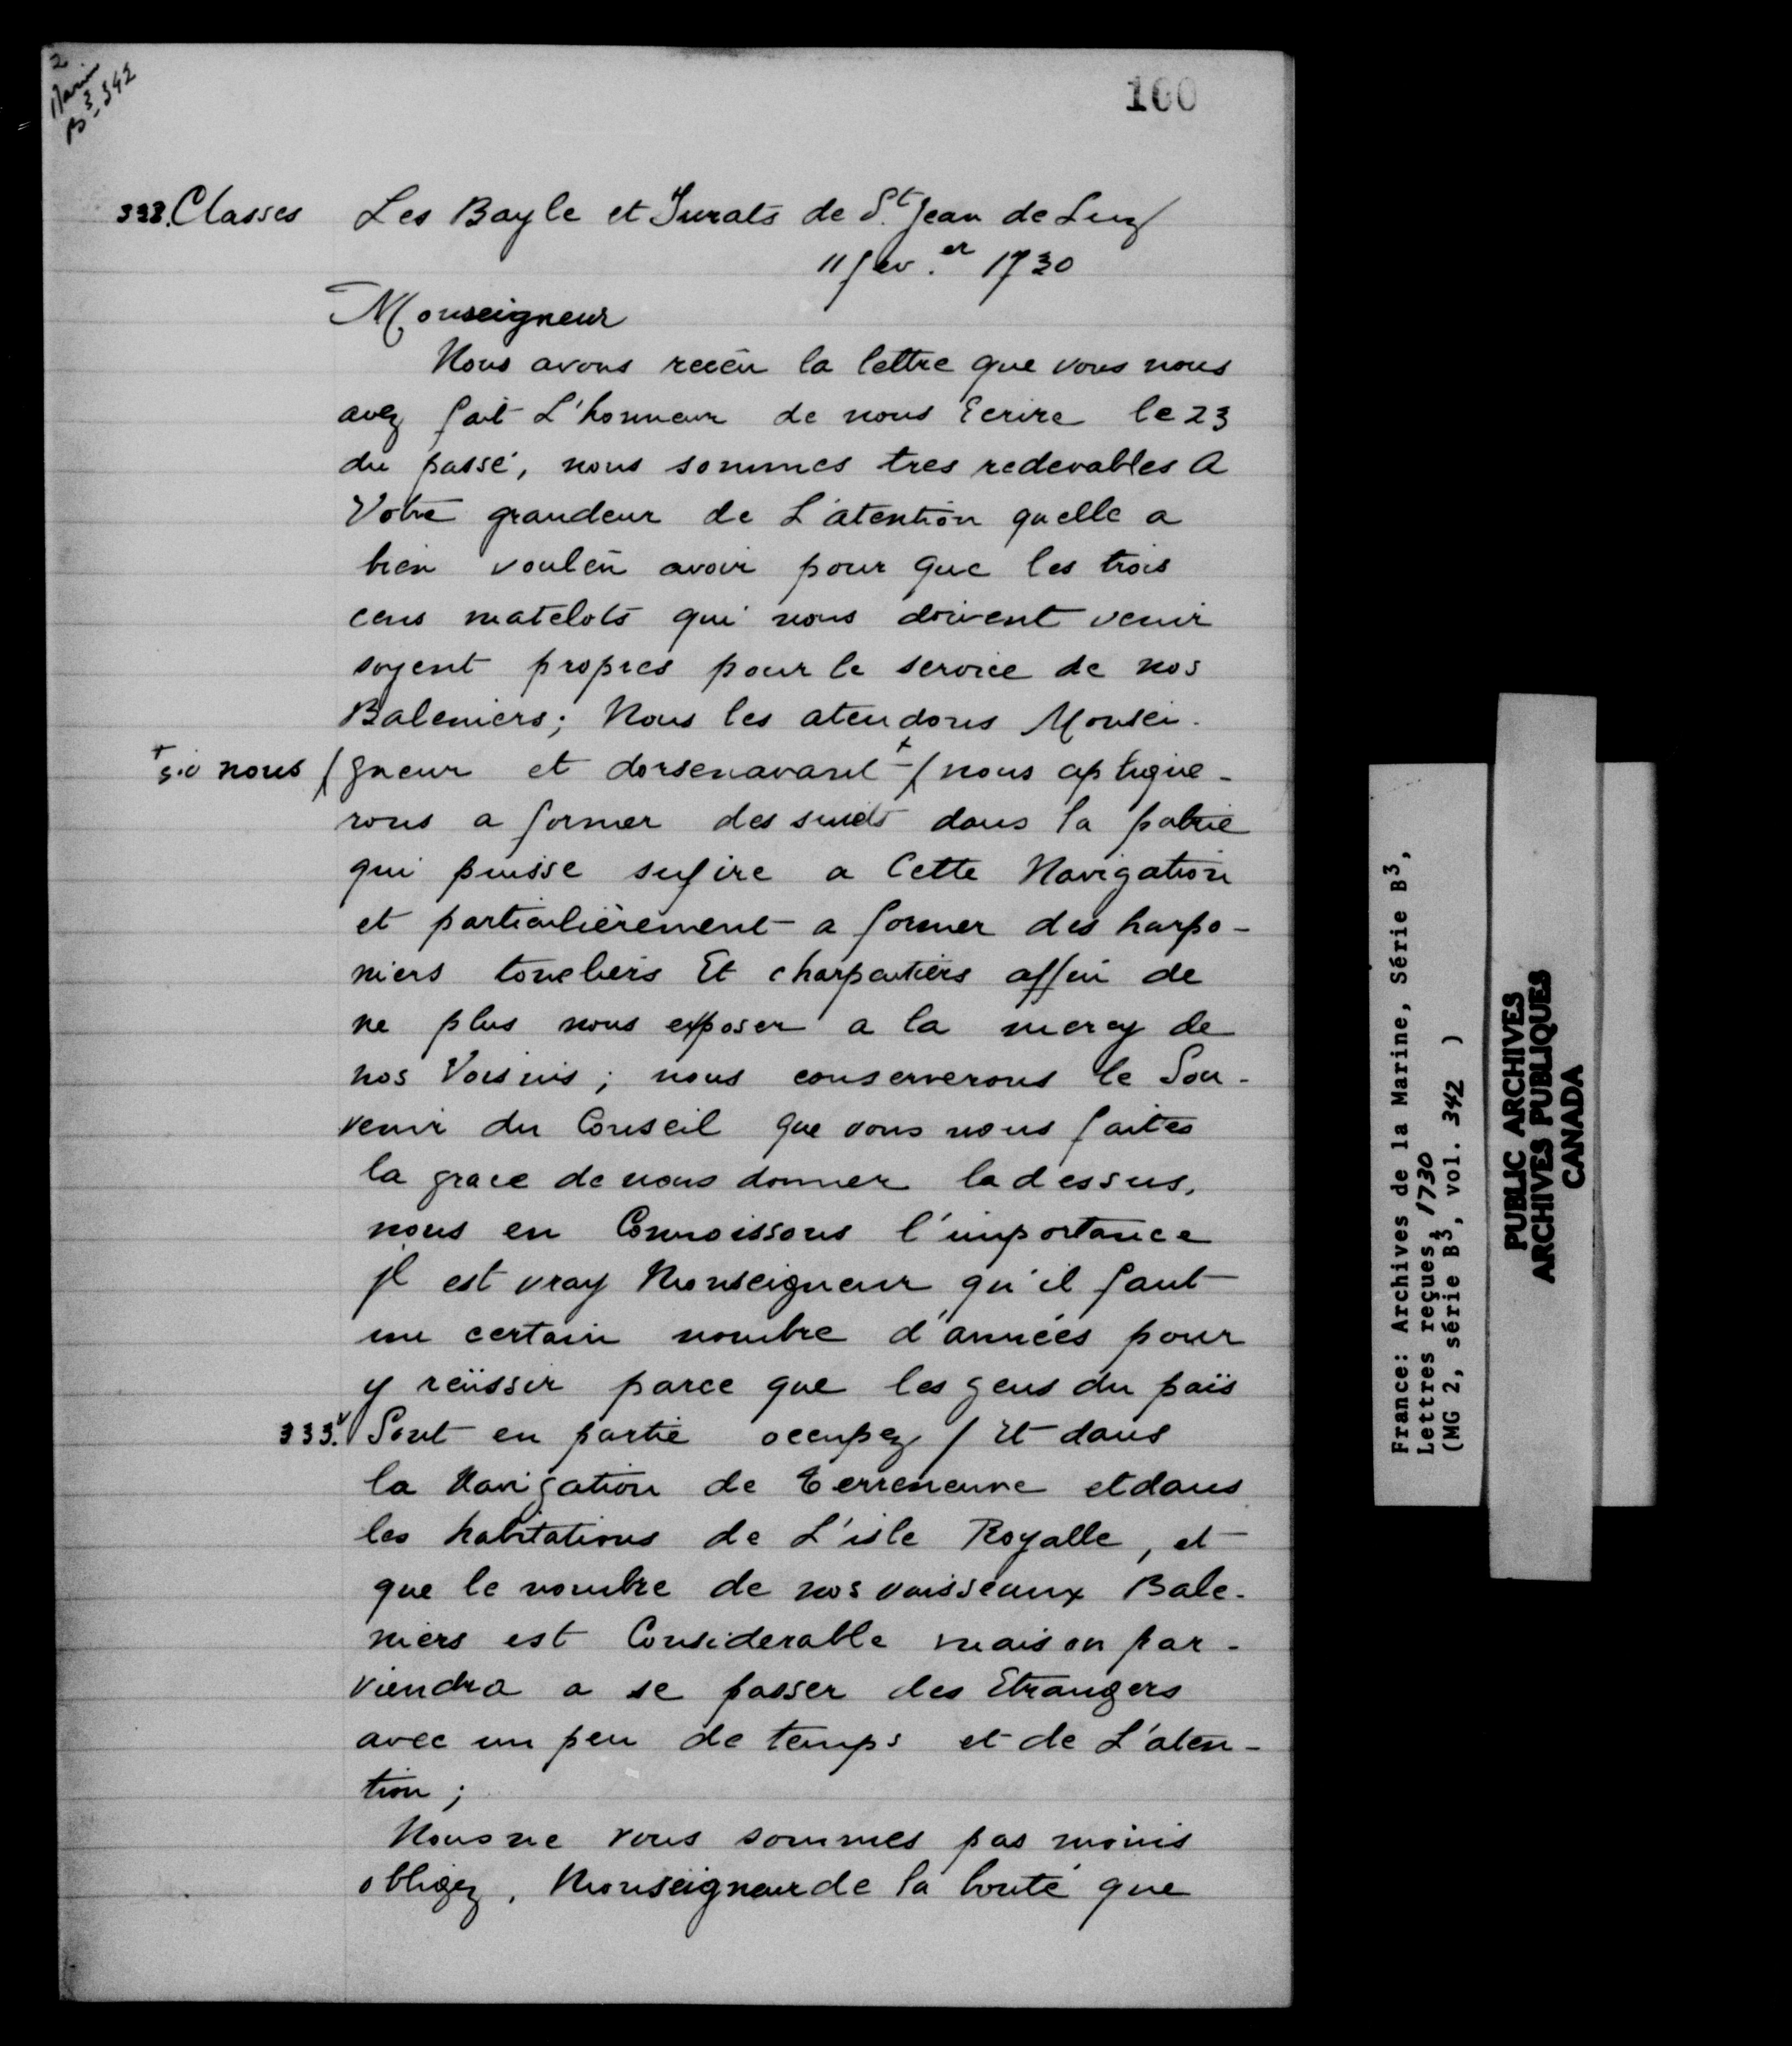 2
Marine
B3-342
160
333. Classes Les Bayle et Jurats de St. Jean de Luz
11 fev.er 1730
Monseigneur
Nous avons receu la lettre que vous nous
avez fait L'honneur de nous Ecrire le 23
du passé, nous sommes tres redevables A
Votre grandeur de L'atention quelle a
bien vouleu avoir pour que les trois
cens matelots qui nous doivent venir
soyent propres pour le service de nos
Baleniers; Nous les atendons Monsei-
+ sic nous / gneur et dorsenavant + / nous aplique-
rons a former des sujets dans la patrie
qui puisse sufire a Cette Navigation
et particulièrement a former des harpo-
niers toneliers Et charpentiers affin de
ne plus nous exposer a la mercy de
nos Voisins; nous conserverons le Sou-
venir du Conseil que vous nous faites
la grace de nous donner ladessus,
nous en Connoissons l'importance
jl est vray Monseigneur qu'il faut
un certain nombre d'années pour
y reüssir parce que les gens du païs
333v. Sont en partie occupez / Et dans
la Navigation de Terreneuve et dans
les habitations de L'isle Royalle, et
que le nombre de nos vaisseaux Bale-
niers est Considerable mais on par-
viendra a se passer des Etrangers
avec un peu de temps et de L'aten-
tion;
Nous ne vous sommes pas moins
obligez, Monseigneur de la bonté que
France: Archives de la Marine, Série B3,
Lettres reçues, 1730
(MG 2, série B3, vol. 342 )
PUBLIC ARCHIVES
ARCHIVES PUBLIQUES
CANADA